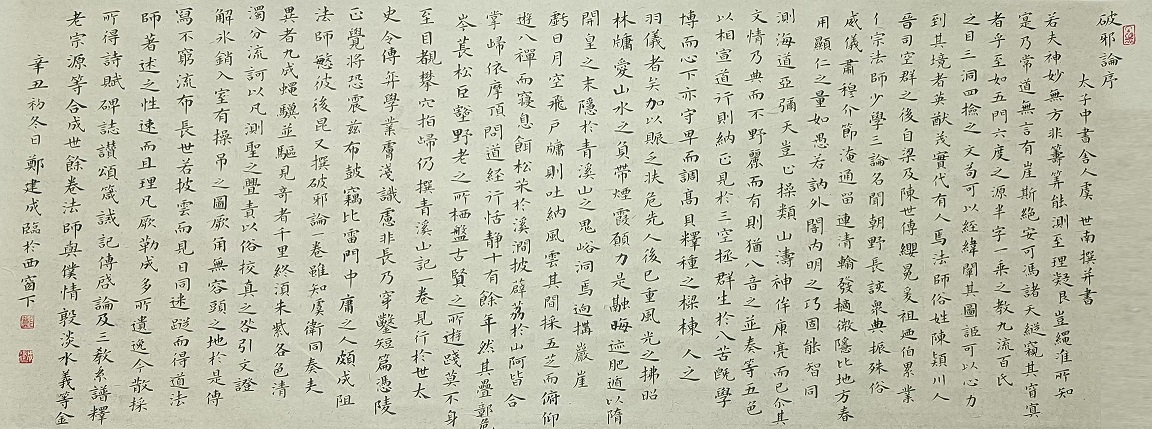 破邪論序
太子中書舍人虞世南撰并書
若夫神妙無方非籌筭能測至理凝邈豈繩准所知
寔乃常道無言有崖斯絕安可馮諸天縱窺其窅冥
者乎至如五門六度之源半字一乘之教九流百氏
之目三洞四檢之文苟可以經緯闡其圖詎可以心力
到其境者英猷茂實代有人焉法師俗姓陳潁川人
晉司空群之後自梁及陳世傳纓冕爰祖迺伯累業
宗法師少學三論名聞朝野長該衆典振殊俗
威儀肅穆介節淹通留連清翰發擿微隱比地方春
用顯仁之量如愚若訥外闇內明之巧固能智同
測海道亞彌天豈止操類山濤神侔庾亮而已尒其
文情乃典而不野麗而有則猶八音之並奏等五色
以相宣道行則納正見於三空拯群生於八苦旣學
博而心下亦守卑而調高貝釋種之樑棟人之
羽儀者矣加以賑乏扶危先人後已重風光之拂照
林牖愛山水之負帶煙霞願力是融晦迹肥遁以隋
開皇之末隱於青溪山之鬼峪洞焉迥構巖崖
虧日月空飛戶牖則吐納風雲其間採五芝而俯仰
遊八禪而寢息餌松茱於溪澗披薜荔於山阿皆合
掌歸依摩頂問道經行恬静十有餘年然其疊鄣危
岑長松巨壑野老之所栖盤古賢之所遊踐莫不身
至目覩攀穴指歸仍撰青溪山記一卷見行於世太
史令傅弈學業膚淺識慮非長乃穿鑿短篇憑陵
正覺將恐震茲布鼓竊比雷門中庸之人頗成阻
法師愍彼後昆又撰破邪論一卷雖知虞衛同奏夫
異者九成蠅驥並驅見奇者千里終須朱紫各色清
濁分流訶以凡測聖之舋責以俗挍真之咎引文證
解氷銷入室有操吊之圖厥角無容頭之地於是傳
寫不窮流布長世若披雲而見日同迷蹤而得道法
師著述之性速而且理凡厥勒成多所遺逸今散採
所得詩賦碑誌讃頌箴誡記傳啓論及三教系譜釋
老宗源等合成世餘卷法師與僕情敦淡水義等金
辛丑初冬日鄭建成臨於西窗下